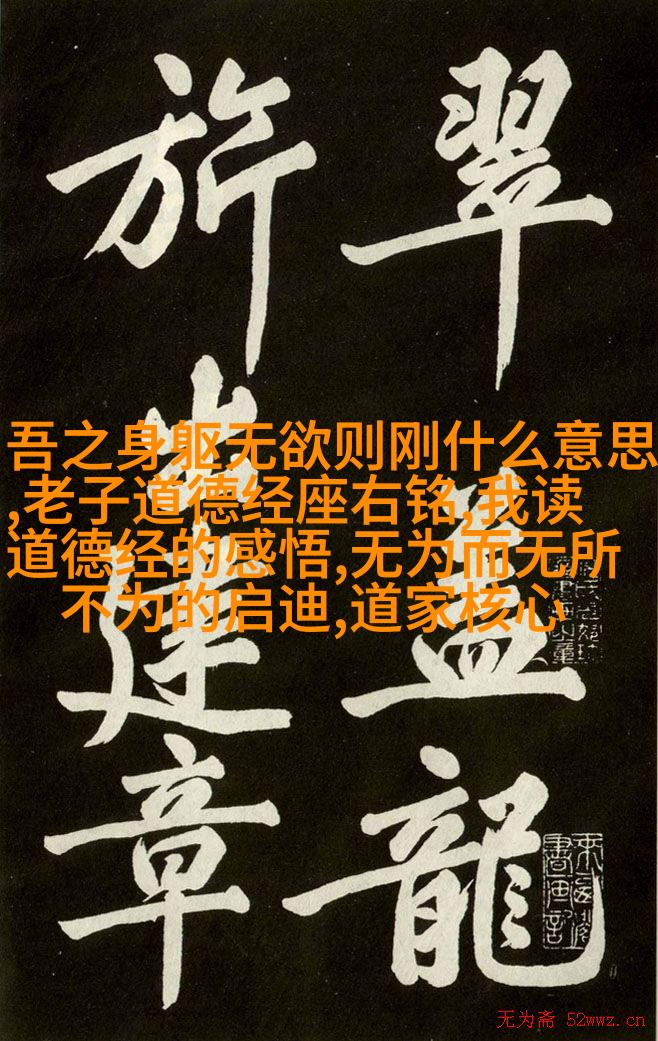 翠蓋龍
旂出建章
吾之身躯无欲则刚什么意思
,老子道德经座右铭,我读
道德经的感悟,无为而无所
不为的启迪,道家核心
无为斋 52wwz.cn